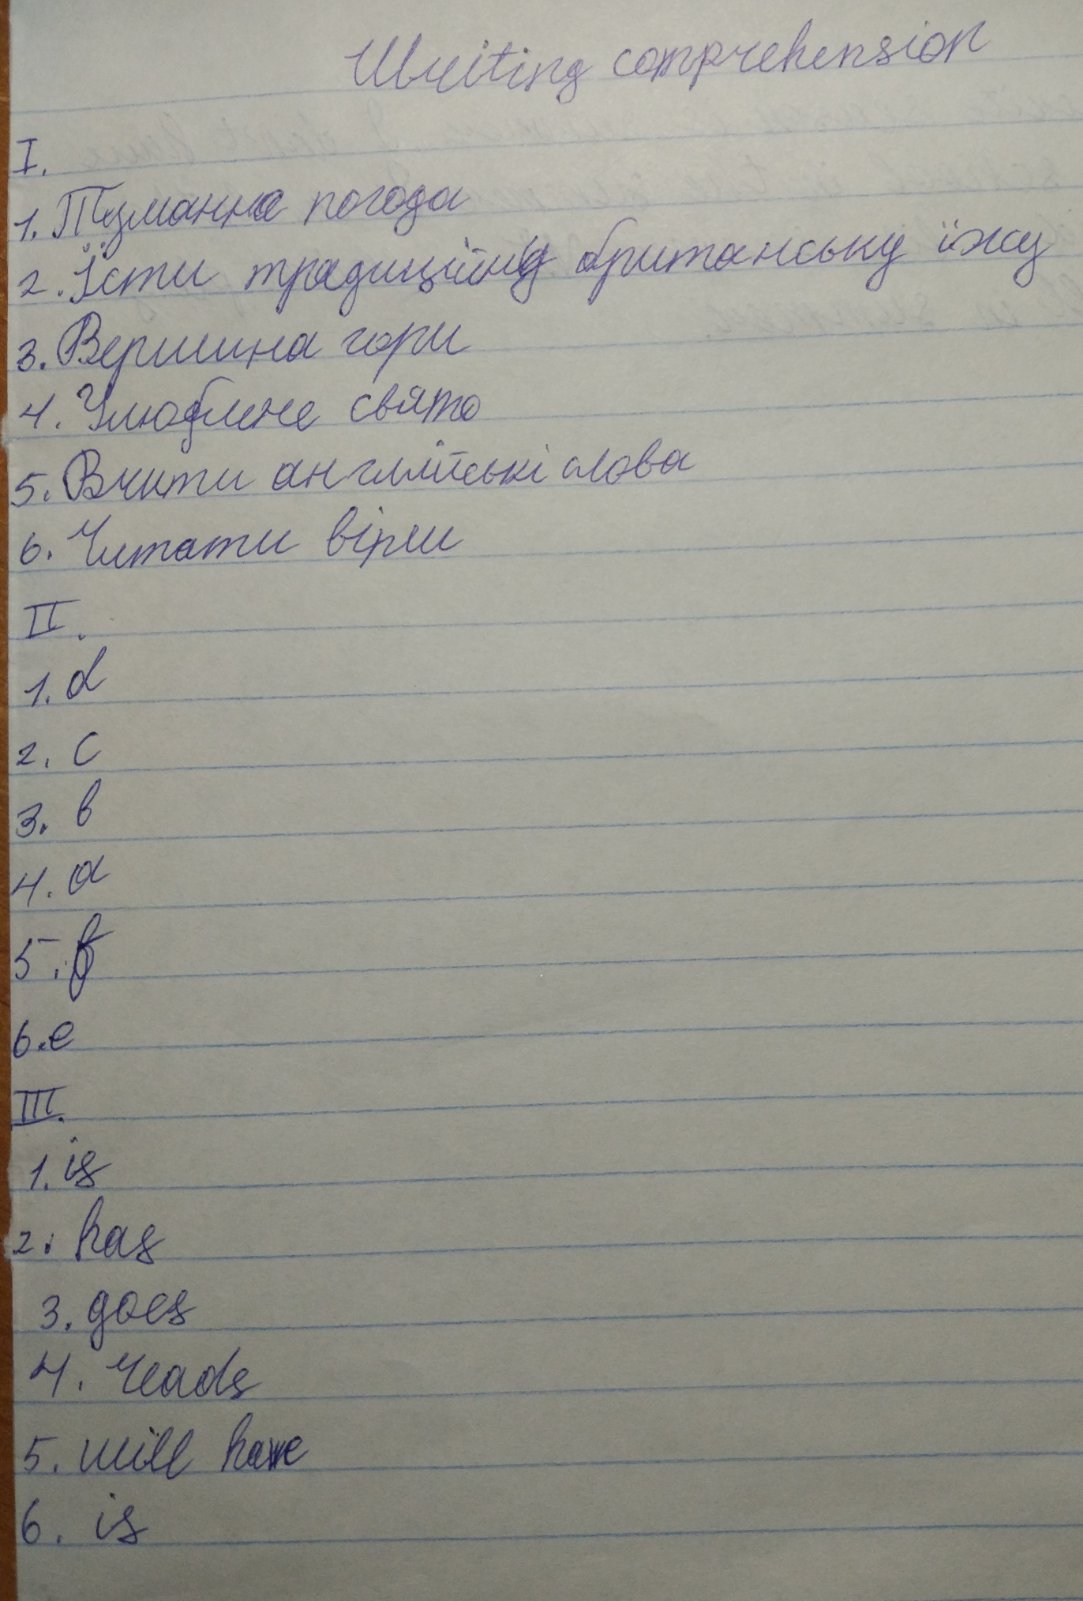 Writing comprehension
I.
1. Туманна погода
2. Їсти традиційну британську їжу
3. Вершина гори
4. Улюблене свято
5. Вчити англійські слова
6. Читати вірш
II.
1. d
2. c
3. b
4. a
5. f
6. e
III.
1. is
2. has
3. goes
4. reads
5. will have
6. is